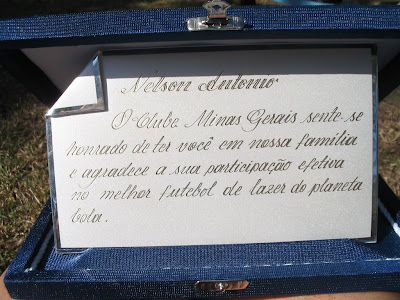 Nelson Antonio
O Clube Minas Gerais sente-se
honrado de ter você em nossa família
e agradece a sua participação efetiva
no melhor futebol de lazer do planeta
bola.